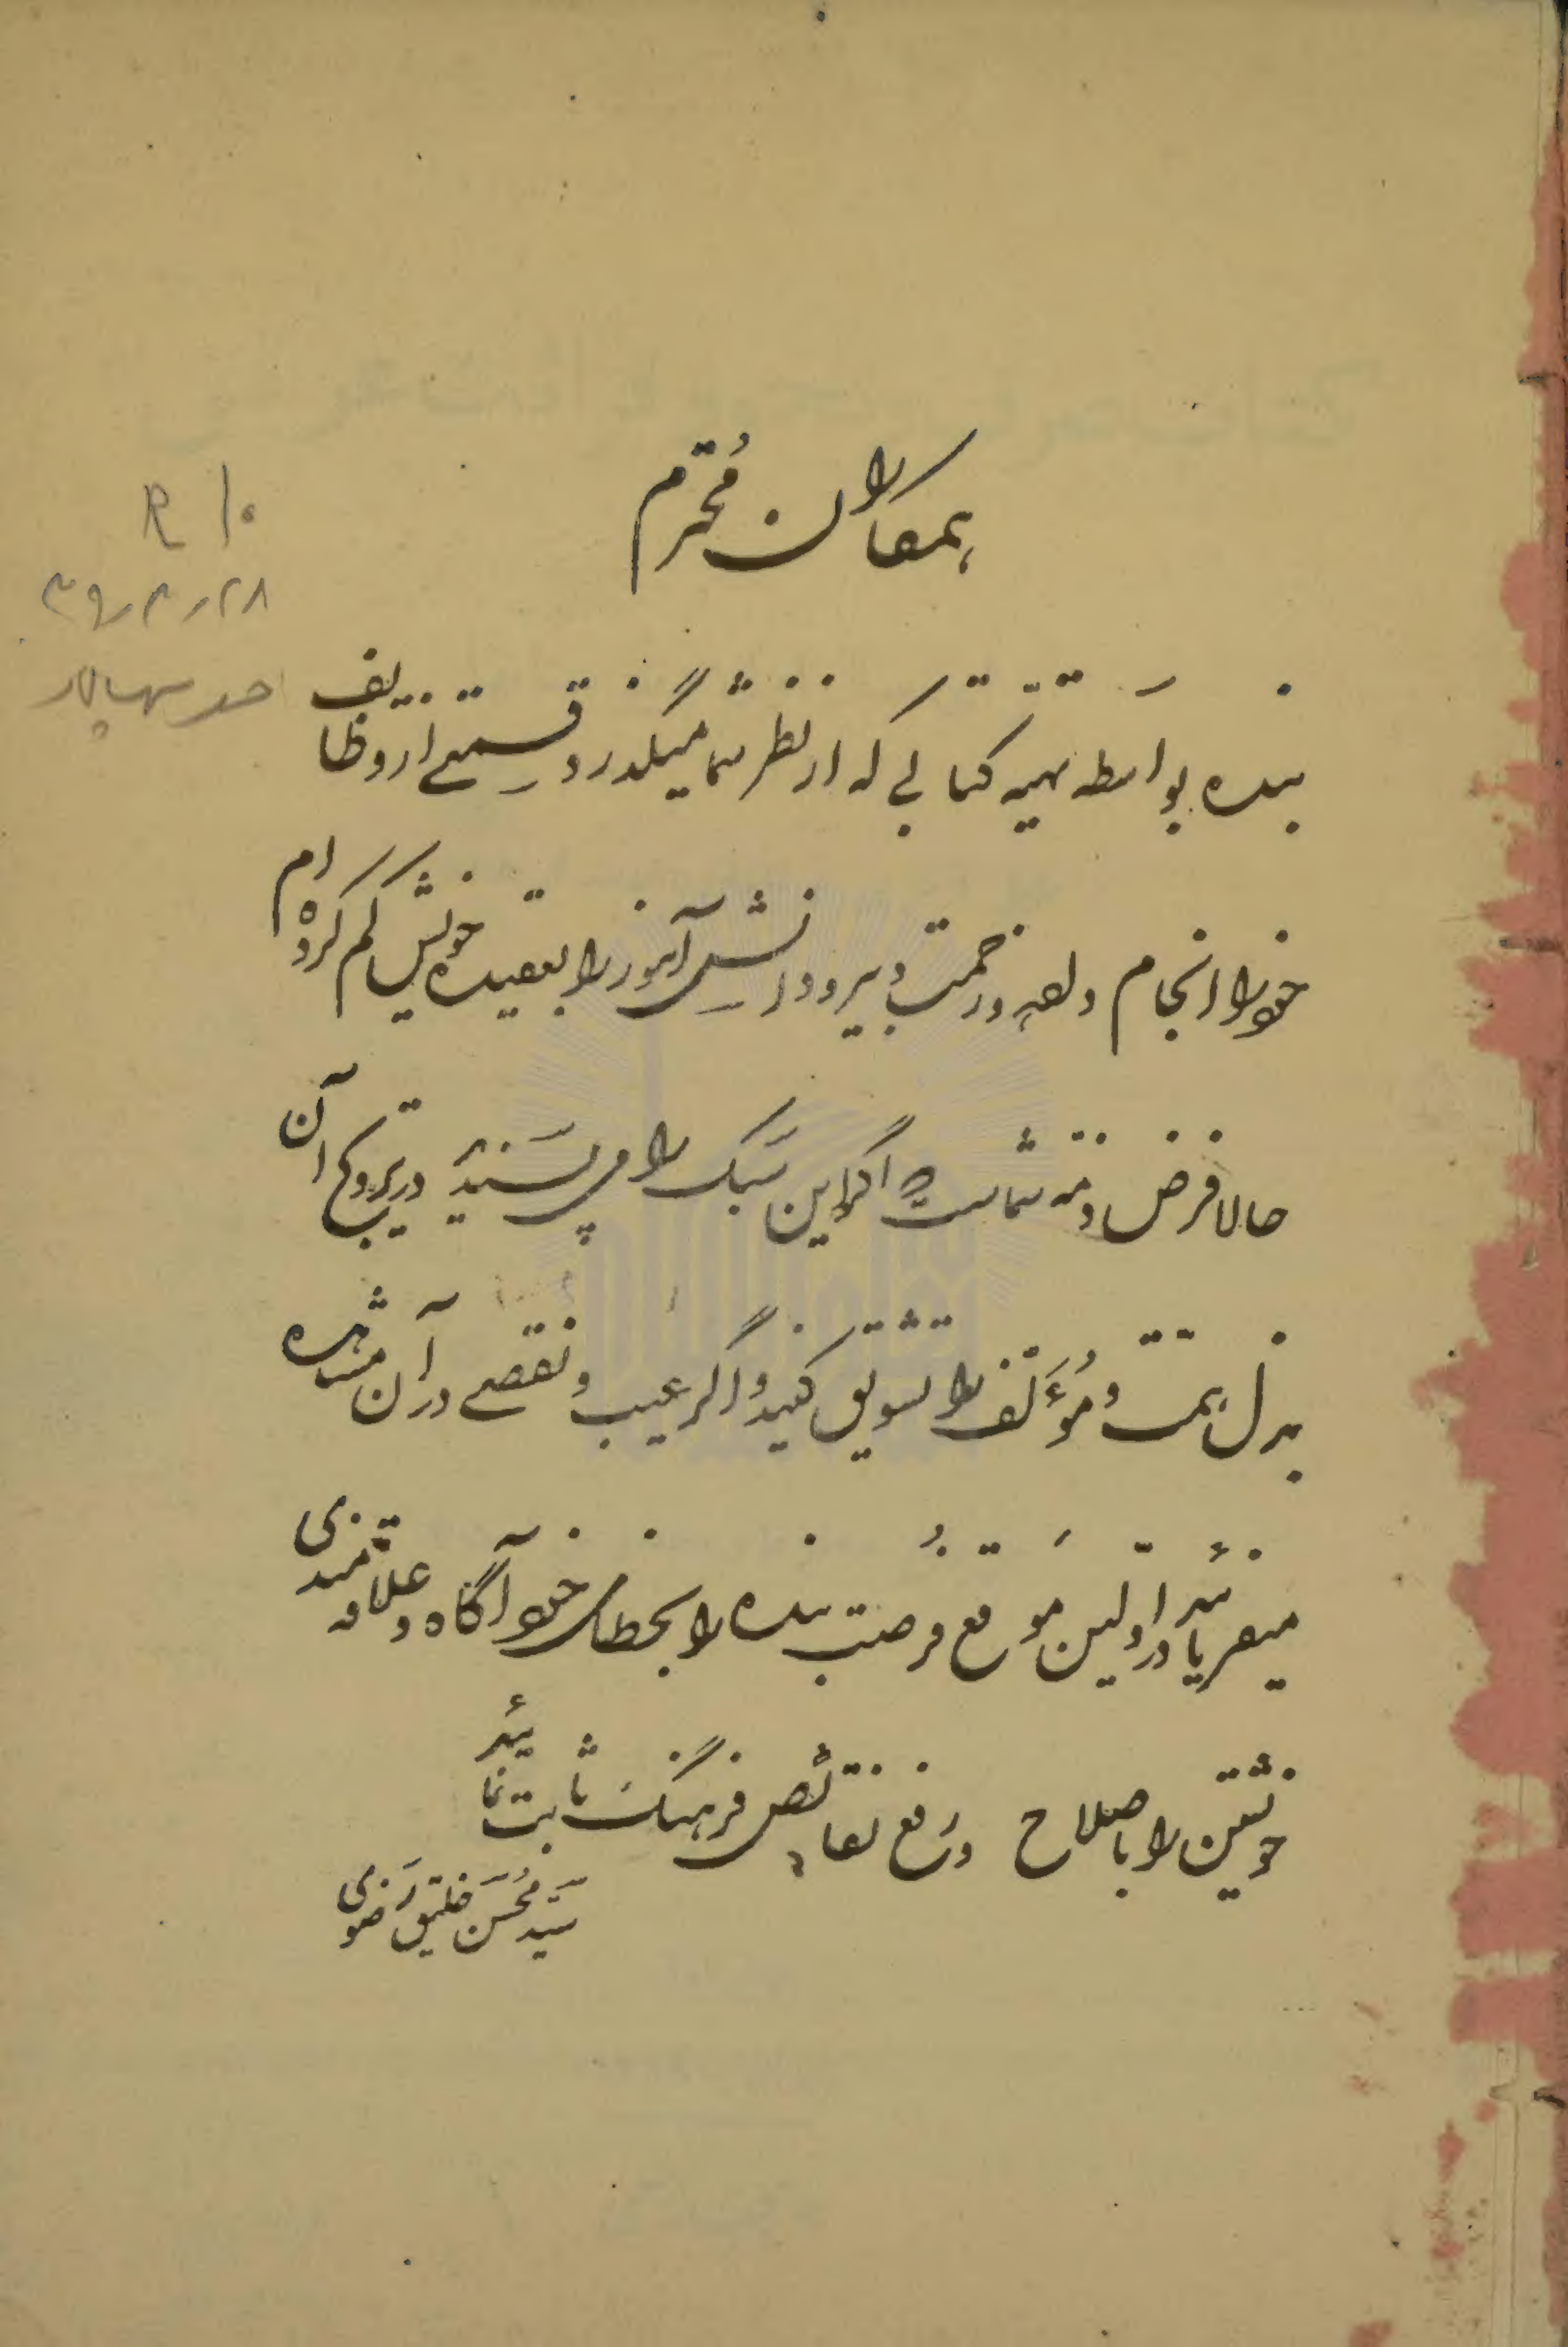 همکاران مُحترم
بنده بواسَطه تهیّه کتابی که از نظر شما میگذرد قسمتی از وظایف
خود را انجام و لهذا زحمت دبیر و دانش‌آموز را بعقیده خویش کم کرده‌ام
حالا فرض ذمّه شماست که اگر این سَبک را می‌پسَندید در ترویج آن
بذل همّت و مُؤَلّف را تشویق کنید و اگر عیب و نقصی در آن مشاهده
میفرمائید در اوّلین موقع فرصت بنده را بخطای خود آگاه و علاقمندی
خویشتن را باصلاح و رَفع نقائص فرهنگ ثابت نمائید
سَیّد مُحسَن خلیق رَضوی
۱۰ R
۳۹٫۴٫۲۸